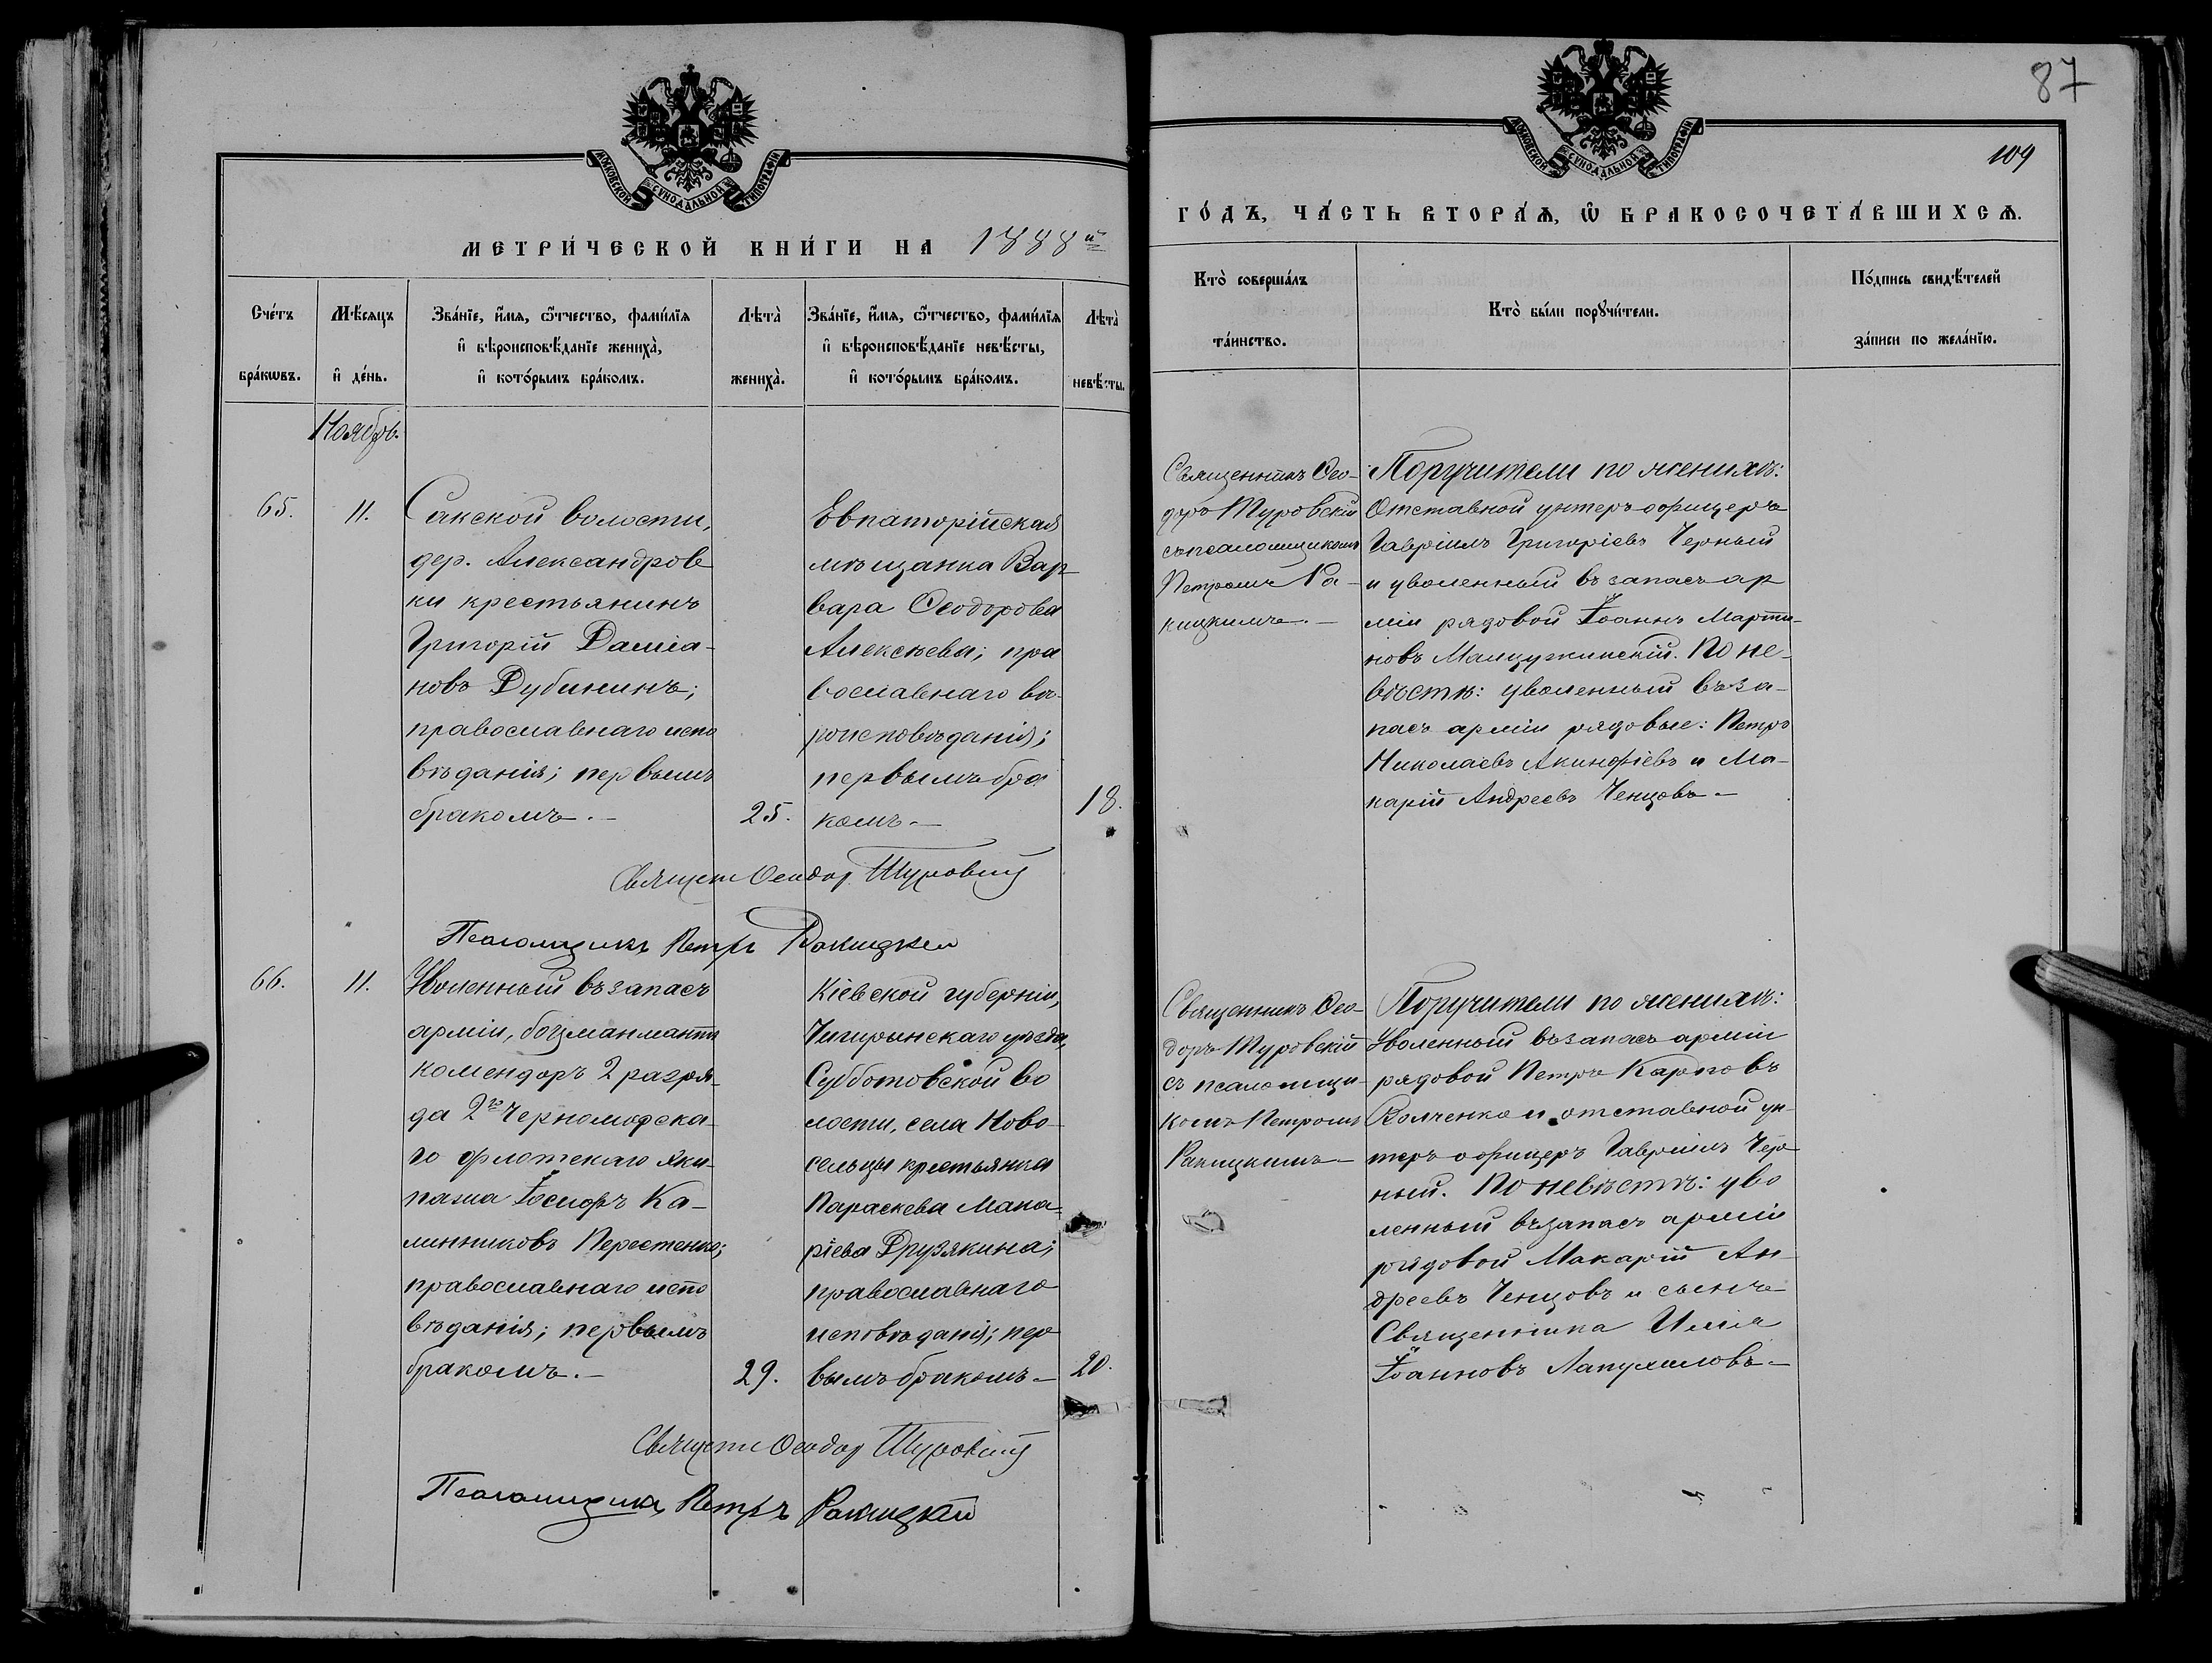 87
109
МОСКОВСКОЙ СУНОДАЛЬНОЙ ТИПОГРАФІИ
МОСКОВСКОЙ СУНОДАЛЬНОЙ ТИПОГРАФІИ
МЕТРИ́ЧЕСКОЙ КНИ́ГИ НА 1888й
ГО́ДЪ, ЧА́СТЬ ВТОРА́Ѧ, Ѡ҆ БРАКОСОЧЕТА́ВШИХСѦ.
Сче́тъ
бра́кѡвъ.
Мѣ́сяцъ
и҆ де́нь.
Зва́нїе, и҆́мѧ, ѻ҆́тчество, фами́лїѧ
и҆ вѣроисповѣ́данїе жениха̀,
и҆ кото́рымъ бра́комъ.
Лѣ́та̀
жениха̀.
Зва́нїе, и҆́мѧ, ѻ҆́тчество, фами́лїѧ
и҆ вѣроисповѣ́данїе невѣ́сты,
и҆ кото́рымъ бра́комъ.
Лѣ́та̀
невѣ́сты.
Кто̀ соверша́лъ
та́инство.
Кто̀ бы́ли порꙋчи́тели.
По́дпись свидѣ́телей
за́писи по жела́нїю.
Ноябрь.
65.
11.
Сакской волости,
дер. Александров
ки крестьянинъ
Григорій Даміа-
новъ Дубининъ;
православнаго испо
вѣданія; первымъ
бракомъ.—
25.
Евпаторійская
мѣщанка Вар
вара Ѳеодорова
Алексѣева; пра
вославнаго вѣ-
роисповѣданія;
первымъ бра
комъ.—
18.
Священникъ Ѳео-
доръ Туровскій
съ псаломщикомъ
Петромъ Ра-
кицкимъ.—
Поручители по женихѣ:
Отставной унтеръ офицеръ
Гавріилъ Григоріевъ Черный
и уволенный въ запасъ ар
міи рядовой Іоаннъ Марти-
новъ Манцужинскій. По не-
вѣстѣ: уволенный въ за-
пасъ арміи рядовые: Петръ
Николаевъ Акинфіевъ и Ма-
карій Андреевъ Ченцовъ.—
Священ Ѳеодор Туровскій
Псаломщикъ Петръ Ракицкій
66.
11.
Уволенный въ запасъ
арміи, боцманматъ
комендоръ 2 разря-
да 2го Черноморска-
го флотскаго эки-
пажа Іосифъ Ка-
линниковъ Перестенко;
православнаго испо
вѣданія; первымъ
бракомъ.—
29.
Кіевской губерніи,
Чигиринскаго уѣзда,
Субботовской во
лости, села Ново-
сельцы крестьянка
Параскева Мака-
ріева Друзякина;
православнаго
исповѣданія; пер
вымъ бракомъ.—
20.
Священникъ Ѳео-
доръ Туровскій
съ псаломщи-
комъ Петромъ
Ракицкимъ.—
Поручители по женихѣ:
Уволенный въ запасъ арміи
рядовой Петръ Карповъ
Волченко и отставной ун-
теръ офицеръ Гавріилъ Чер
ный. По невѣстѣ: уво
ленный въ запасъ арміи
рядовой Макарій Ан-
дреевъ Ченцовъ и сынъ
Священника Илія
Іоанновъ Лапушиловъ.—
Священ Ѳеодор Туровскій
Псаломщикъ Петръ Ракицкій